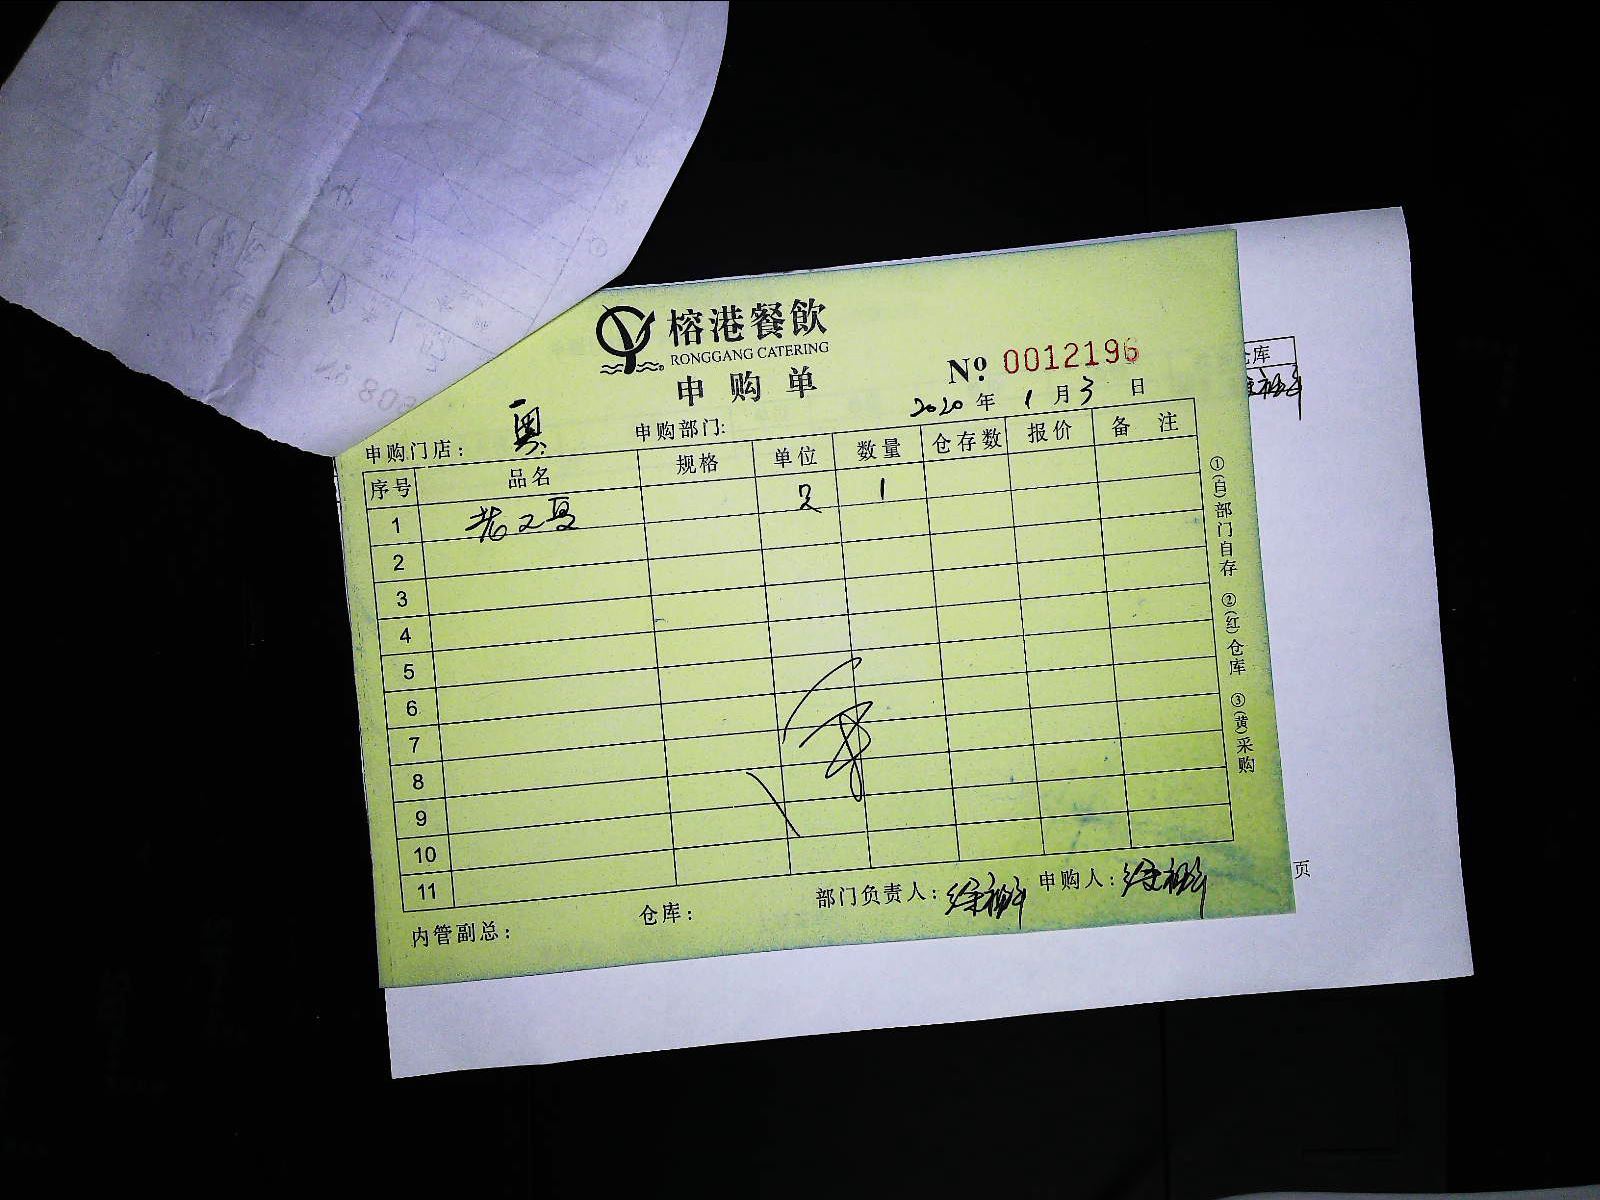 榕港餐飲
RONGGANG CATERING
申购单
№ 0012196
2020 年 1 月 3 日
申购门店： 奥
申购部门:
序号 品名 规格 单位 数量 仓存数 报价 备 注
1 只 1
2
3
4
5
6
7
8
9
10
11
内管副总：
仓库：
部门负责人：
申购人：
①(白)部门自存 ②(红)仓库 ③(黄)采购
仓库
页